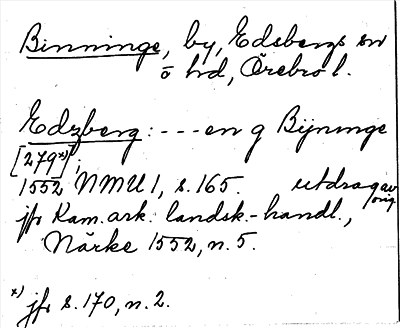 Binninge, by, Edsbergs sn
o hd, Örebro l.
Edzberg: --- en g Bijninge
[279*)];
1552 NMU 1, s. 165. utdrag av orig
jfr Kam.ark. landsk.-handl.,
Närke 1552, n. 5.
*) jfr s. 170, n. 2.